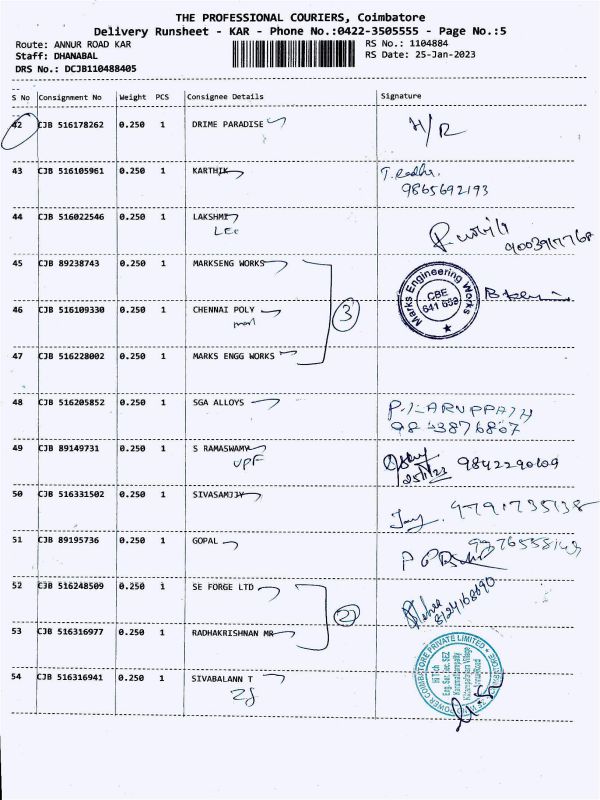 THE PROFESSIONAL COURIERS, Coimbatore
Delivery Runsheet - KAR - Phone No.:0422-3505555 - Page No.:5
Route: ANNUR ROAD KAR RS No.: 1104884
Staff: DHANABAL RS Date: 25-Jan-2023
DRS No.: DCJB110488405
S No Consignment No Weight PCS Consignee Details Signature
42 CJB 516178262 0.250 1 DRIME PARADISE H/R
43 CJB 516105961 0.250 1 KARTHIK T. Radhi.
9865692193
44 CJB 516022546 0.250 1 LAKSHMI
Lee
45 CJB 89238743 0.250 1 MARKSENG WORKS
Marks Engineering Works
CBE
641 659
46 CJB 516109330 0.250 1 CHENNAI POLY 3
47 CJB 516228002 0.250 1 MARKS ENGG WORKS
48 CJB 516205852 0.250 1 SGA ALLOYS P. KARUPPATH
9843876867
49 CJB 89149731 0.250 1 S RAMASWAMY 9842290609
UPF 25/1/23
50 CJB 516331502 0.250 1 SIVASAMJJY Jay. 9791735138
51 CJB 89195736 0.250 1 GOPAL
52 CJB 516248509 0.250 1 SE FORGE LTD 8124168690
2
53 CJB 516316977 0.250 1 RADHAKRISHNAN MR
54 CJB 516316941 0.250 1 SIVABALANN T
COIMBATORE PRIVATE LIMITED
Hi Tech
Eng. Sec. SEZ